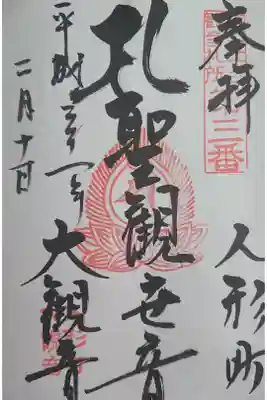 奉拝
三番
人形町
聖観世音
大観音
平成三十一年
二月十日